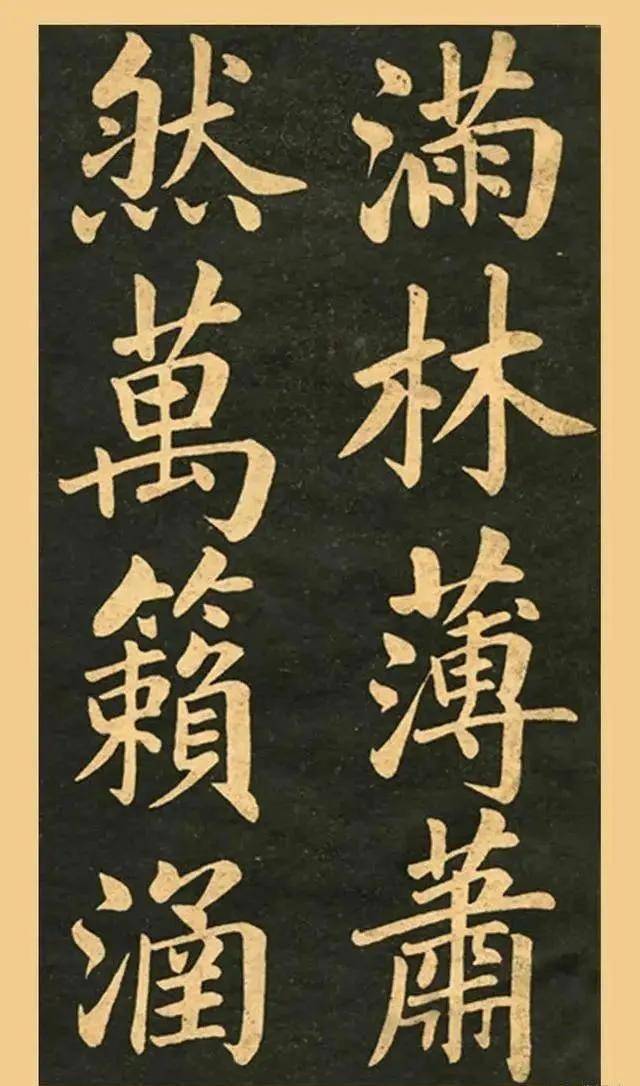 滿林薄蕭
然萬籟涵